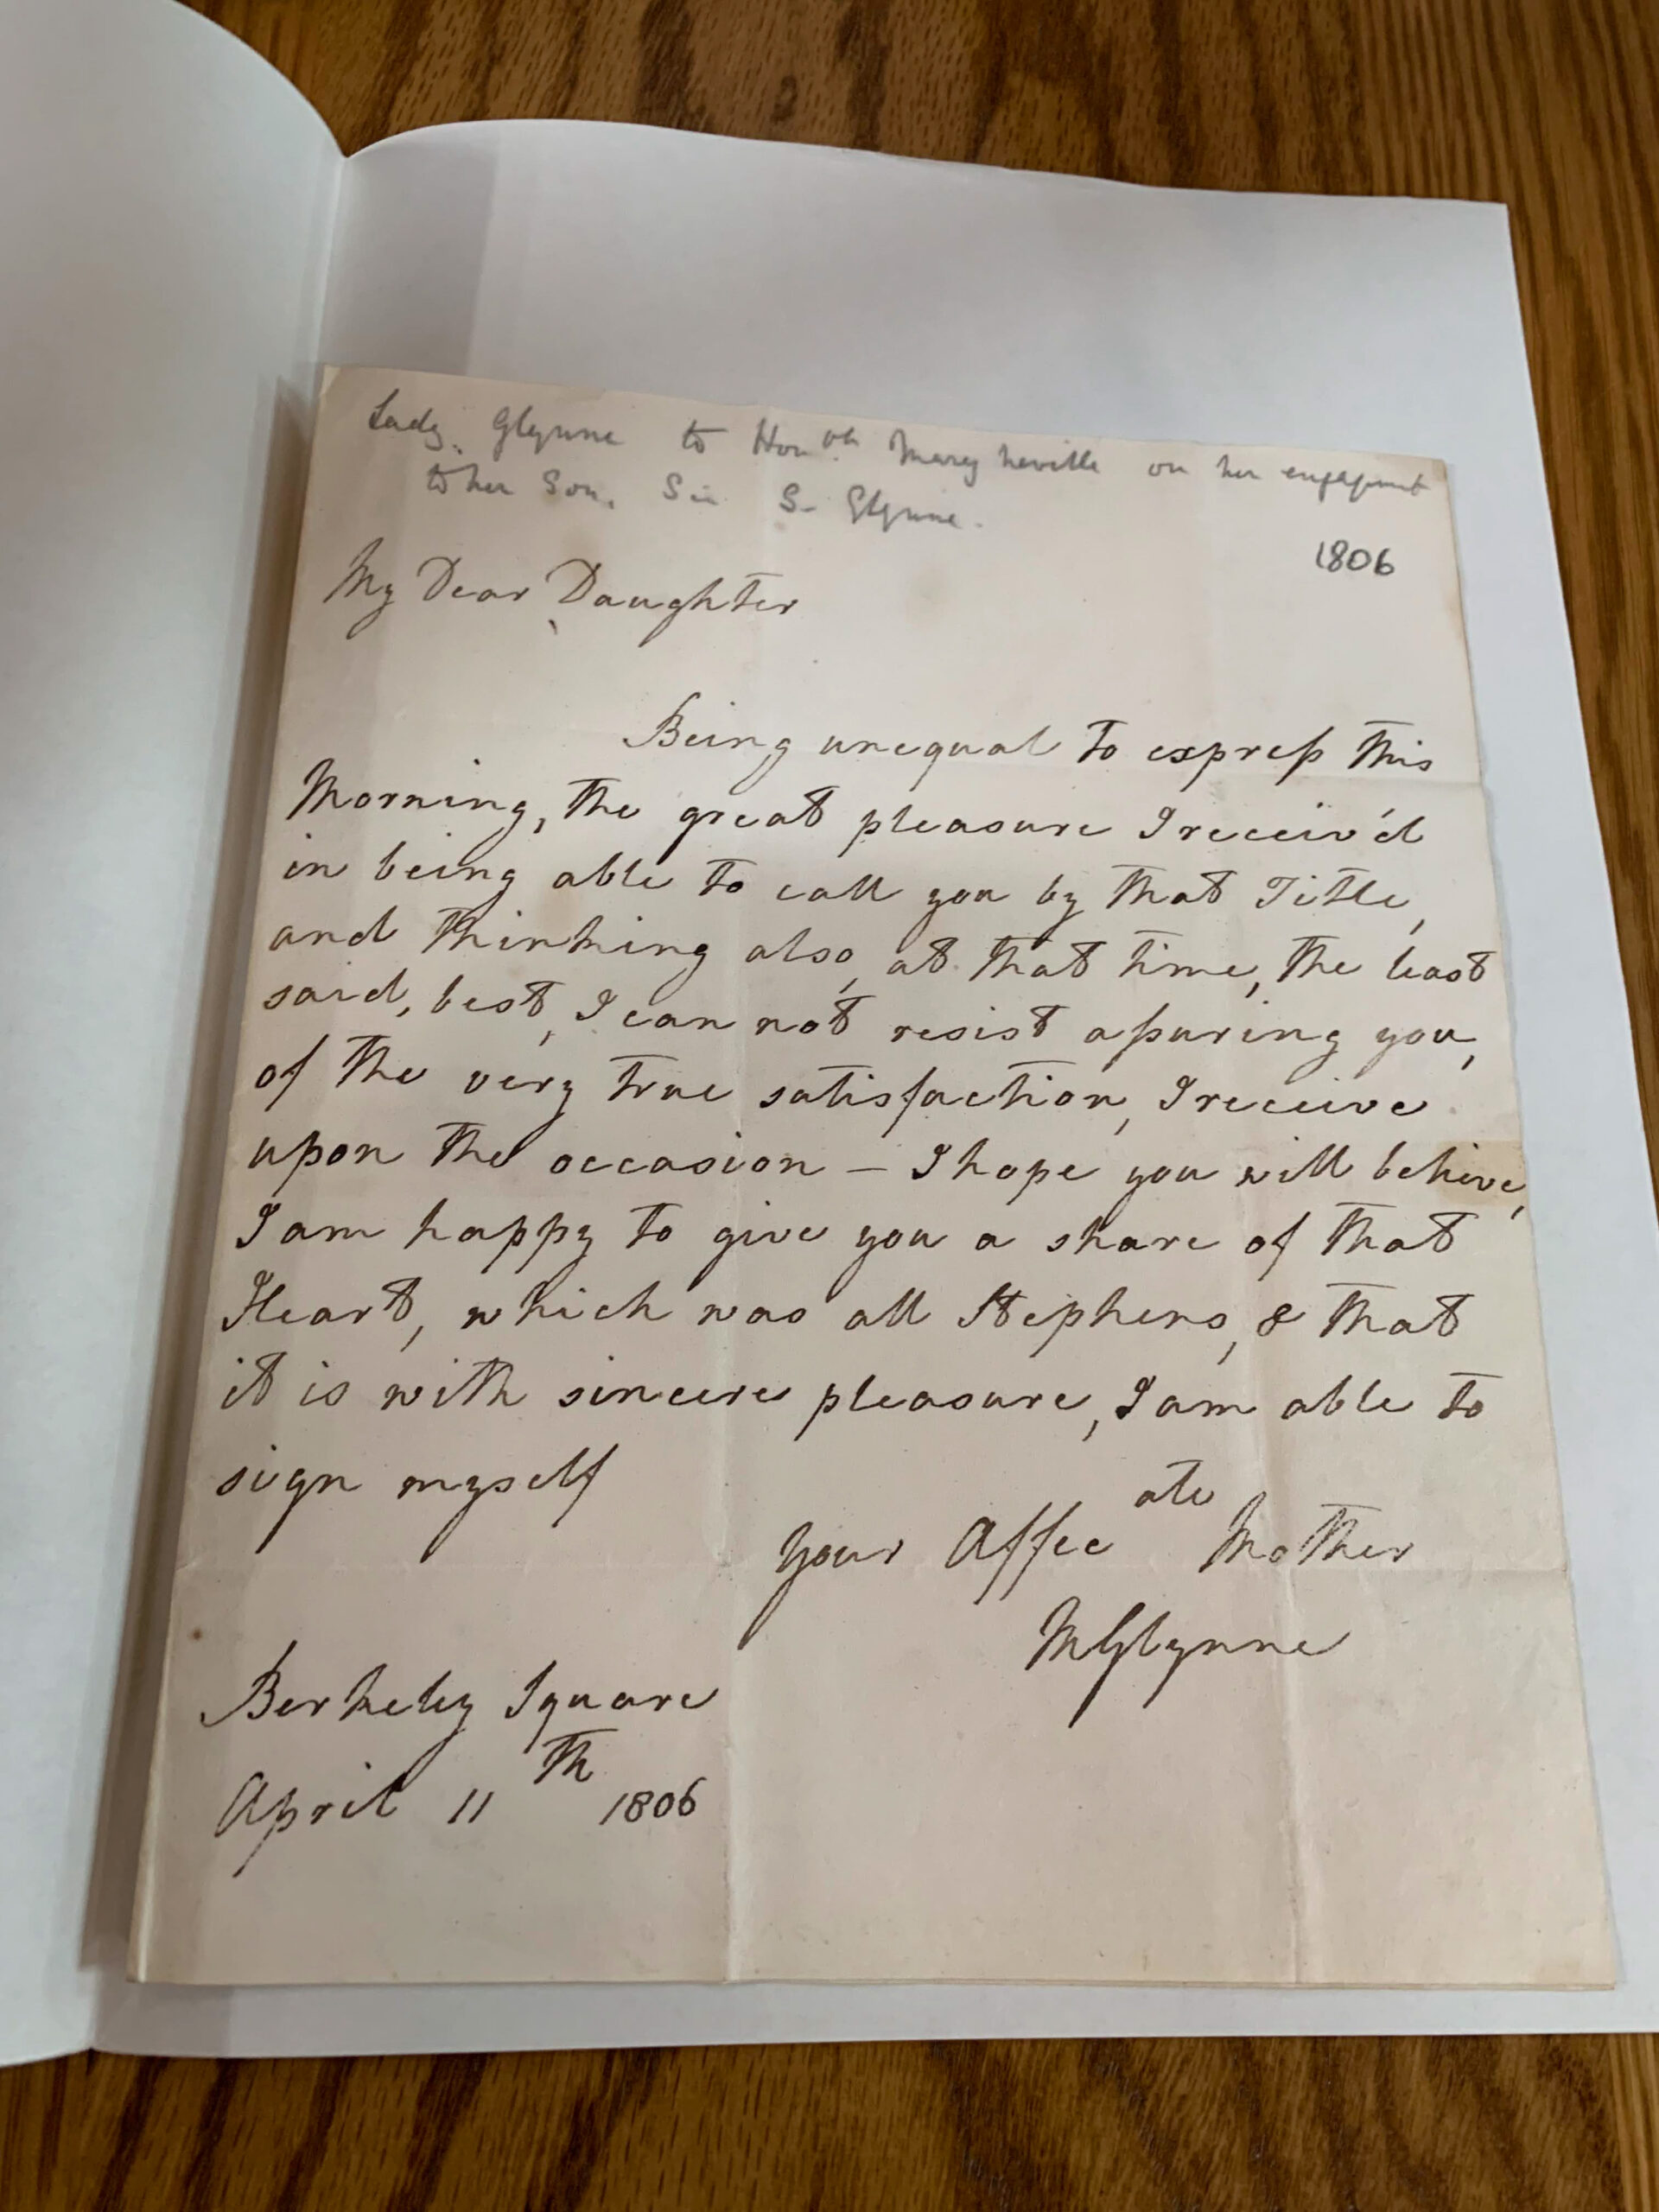 Lady Glynne to Hon^ble Mary Neville on her engagement
to her Son, Sir S. Glynne.
1806
My Dear Daughter
Being unequal to express this
Morning, the great pleasure I receiv'd
in being able to call you by that Title,
and thinking also, at that time, the least
said, best, I can not resist assuring you,
of the very true satisfaction, I receive
upon the occasion – I hope you will believe,
I am happy to give you a share of that
Heart, which was all Stephens, & that
it is with sincere pleasure, I am able to
sign myself
Your Affec^ate Mother
MGlynne
Berkeley Square
April 11^th 1806